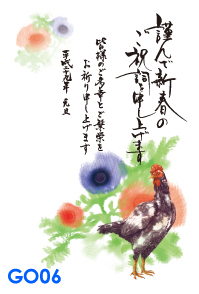 謹んで新春の
ご祝詞申し上げます
皆様のご多幸とご繁栄を
お祈り申し上げます
平成二十九年 元旦
GO06